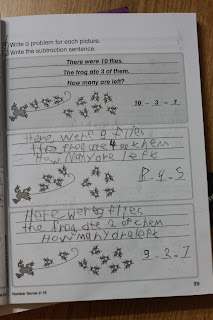 Write a problem for each picture.
Write the subtraction sentence.
There were 10 flies.
The frog ate 3 of them.
How many are left?
10 - 3 = 7
Here were flies
the frog ate 4 of them
How Many are left
Here were 9 flies
the frog ate 2 of them
How many are left
9 - 2 = 7
39